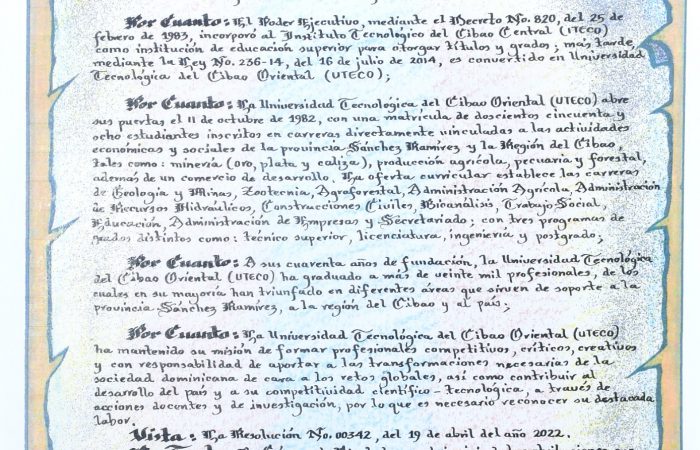 Por Cuanto: El Poder Ejecutivo, mediante el Decreto No. 820, del 25 de
febrero de 1983, incorporó al Instituto Tecnológico del Cibao Central (ITECE)
como institución de educación superior para otorgar títulos y grados; más tarde,
mediante la Ley No. 236-14, del 16 de julio de 2014, es convertido en Universidad
Tecnológica del Cibao Oriental (UTECO);
Por Cuanto: La Universidad Tecnológica del Cibao Oriental (UTECO) abre
sus puertas el 11 de octubre de 1982, con una matrícula de doscientos cincuenta y
ocho estudiantes inscritos en carreras directamente vinculadas a las actividades
económicas y sociales de la provincia Sánchez Ramírez y la Región del Cibao,
tales como: minería (oro, plata y caliza), producción agrícola, pecuaria y forestal,
además de un comercio de desarrollo. La oferta curricular establece las carreras
de Geología y Minas, Zootecnia, Agroforestal, Administración Agrícola, Administración
de Recursos Hidráulicos, Construcciones Civiles, Bioanálisis, Trabajo Social,
Educación, Administración de Empresas y Secretariado; con tres programas de
grados distintos como: técnico superior, licenciatura, ingeniería y postgrado;
Por Cuanto: A sus cuarenta años de fundación, la Universidad Tecnológica
del Cibao Oriental (UTECO) ha graduado a más de veinte mil profesionales, de los
cuales en su mayoría han triunfado en diferentes áreas que sirven de soporte a la
provincia Sánchez Ramírez, a la región del Cibao y al país;
Por Cuanto: La Universidad Tecnológica del Cibao Oriental (UTECO)
ha mantenido su misión de formar profesionales competitivos, críticos, creativos
y con responsabilidad de aportar a las transformaciones necesarias de la
sociedad dominicana de cara a los retos globales, así como contribuir al
desarrollo del país y a su competitividad científico-tecnológica, a través de
acciones docentes y de investigación, por lo que es necesario reconocer su destacada
labor.
Vista: La Resolución No. 00342, del 19 de abril del año 2022.